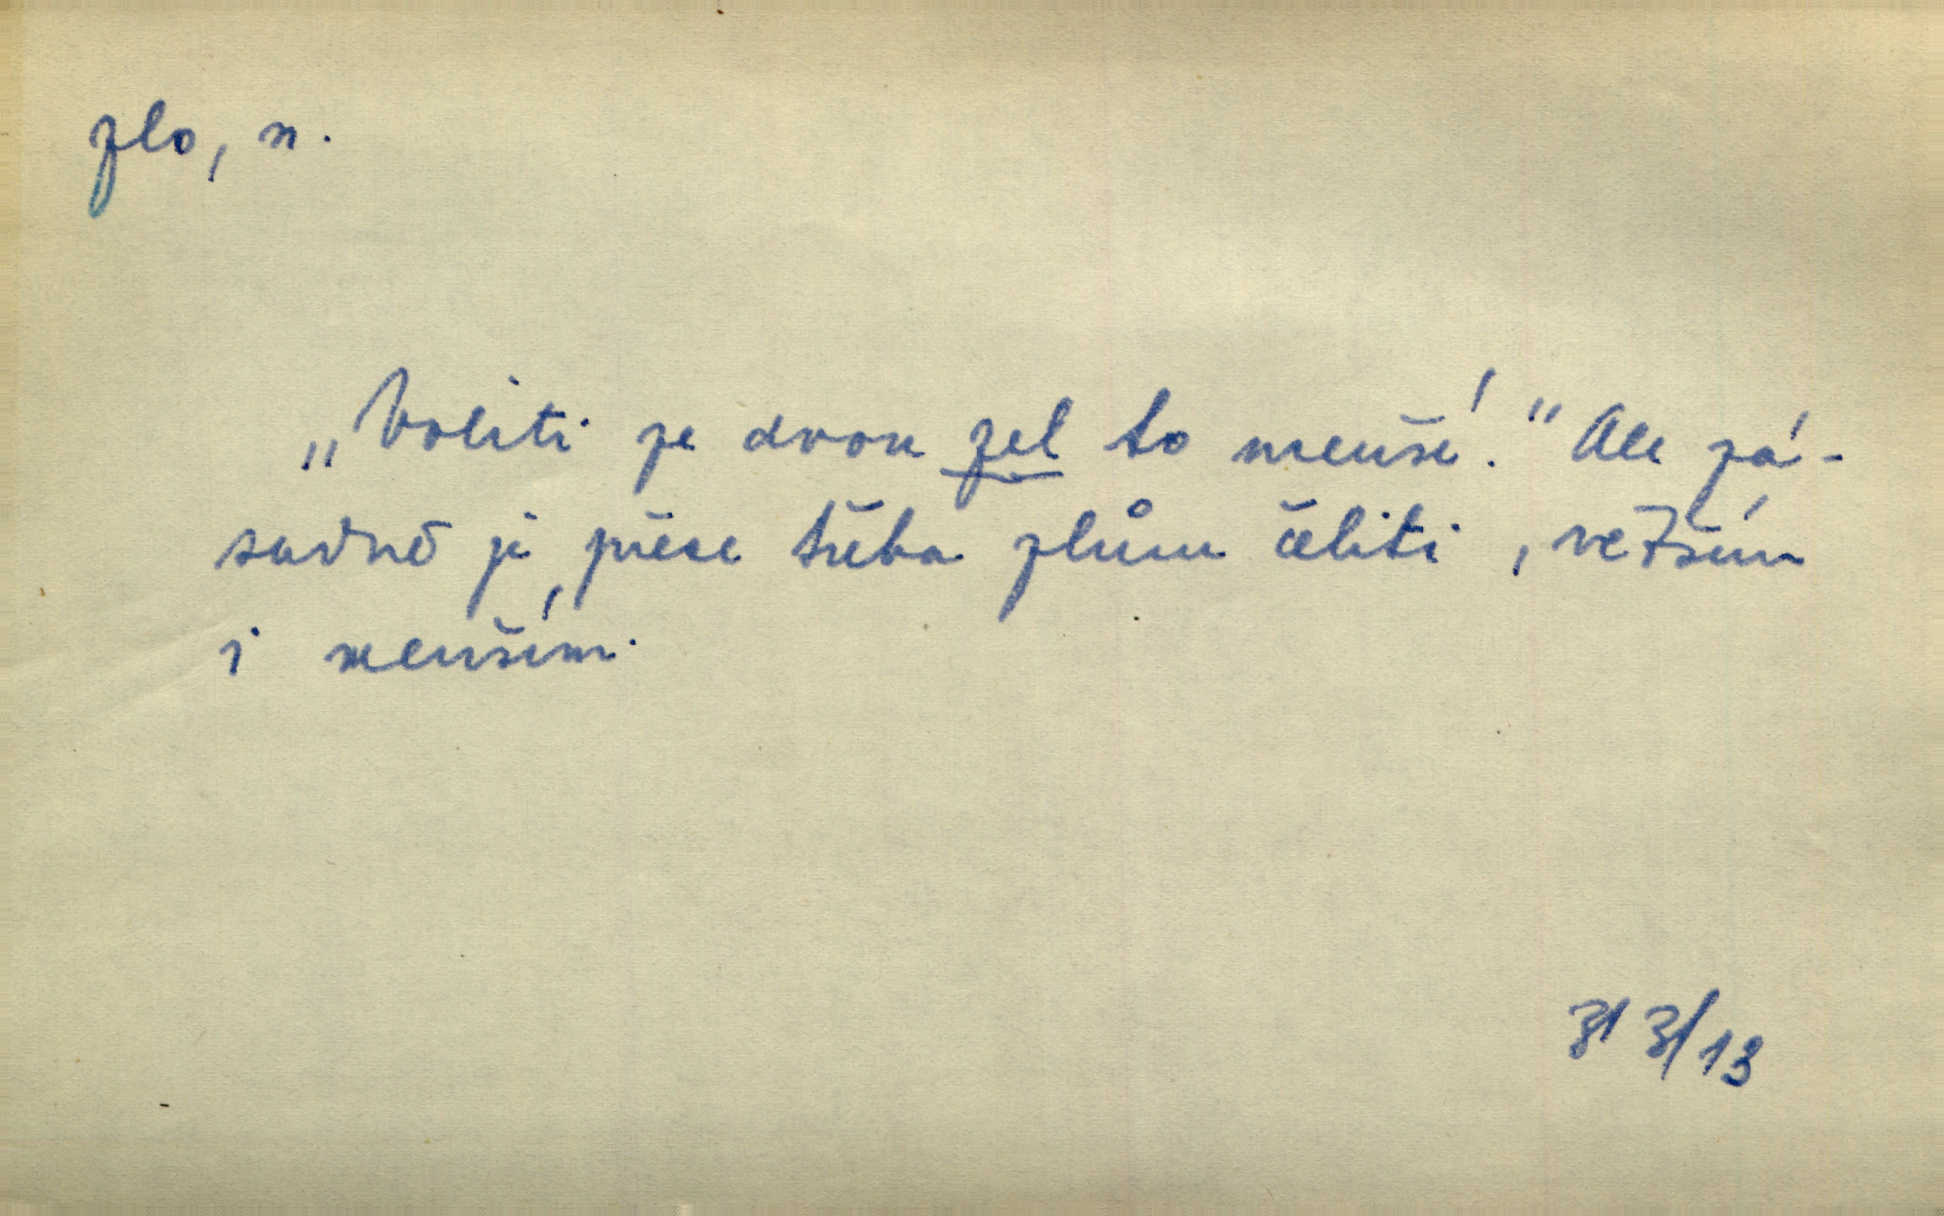 zlo, n.
„Voliti ze dvou zel to menší." Ale zá-
sadně je přece třeba zlům čeliti, větším
i menším.
31 31/13